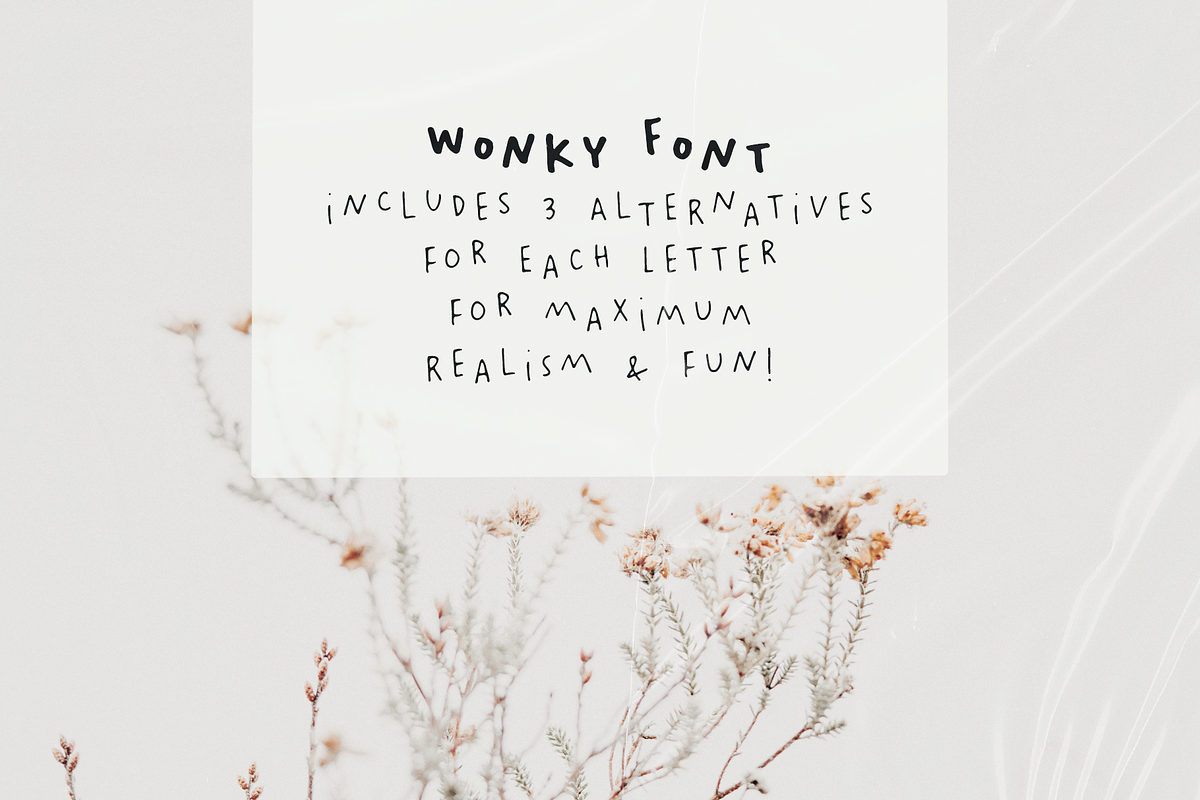 WONKY FONT
iNCLUDES 3 ALTERNATiVES
FOR EACH LETTER
FOR MAXiMUM
REALiSM & FUN!